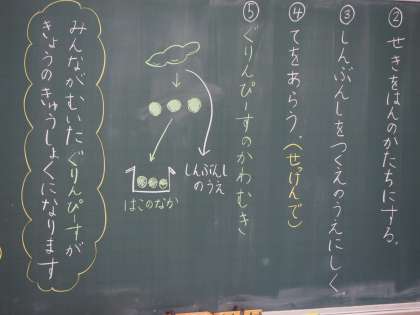 ②せきをはんのかたちにする。
③しんぶんしをつくえのうえにしく。
④てをあらう。(せっけんで)
⑤ぐりんぴーすのかわむき
しんぶんし
のうえ
はこのなか
みんながむいたぐりんぴーすが
きょうのきゅうしょくになります